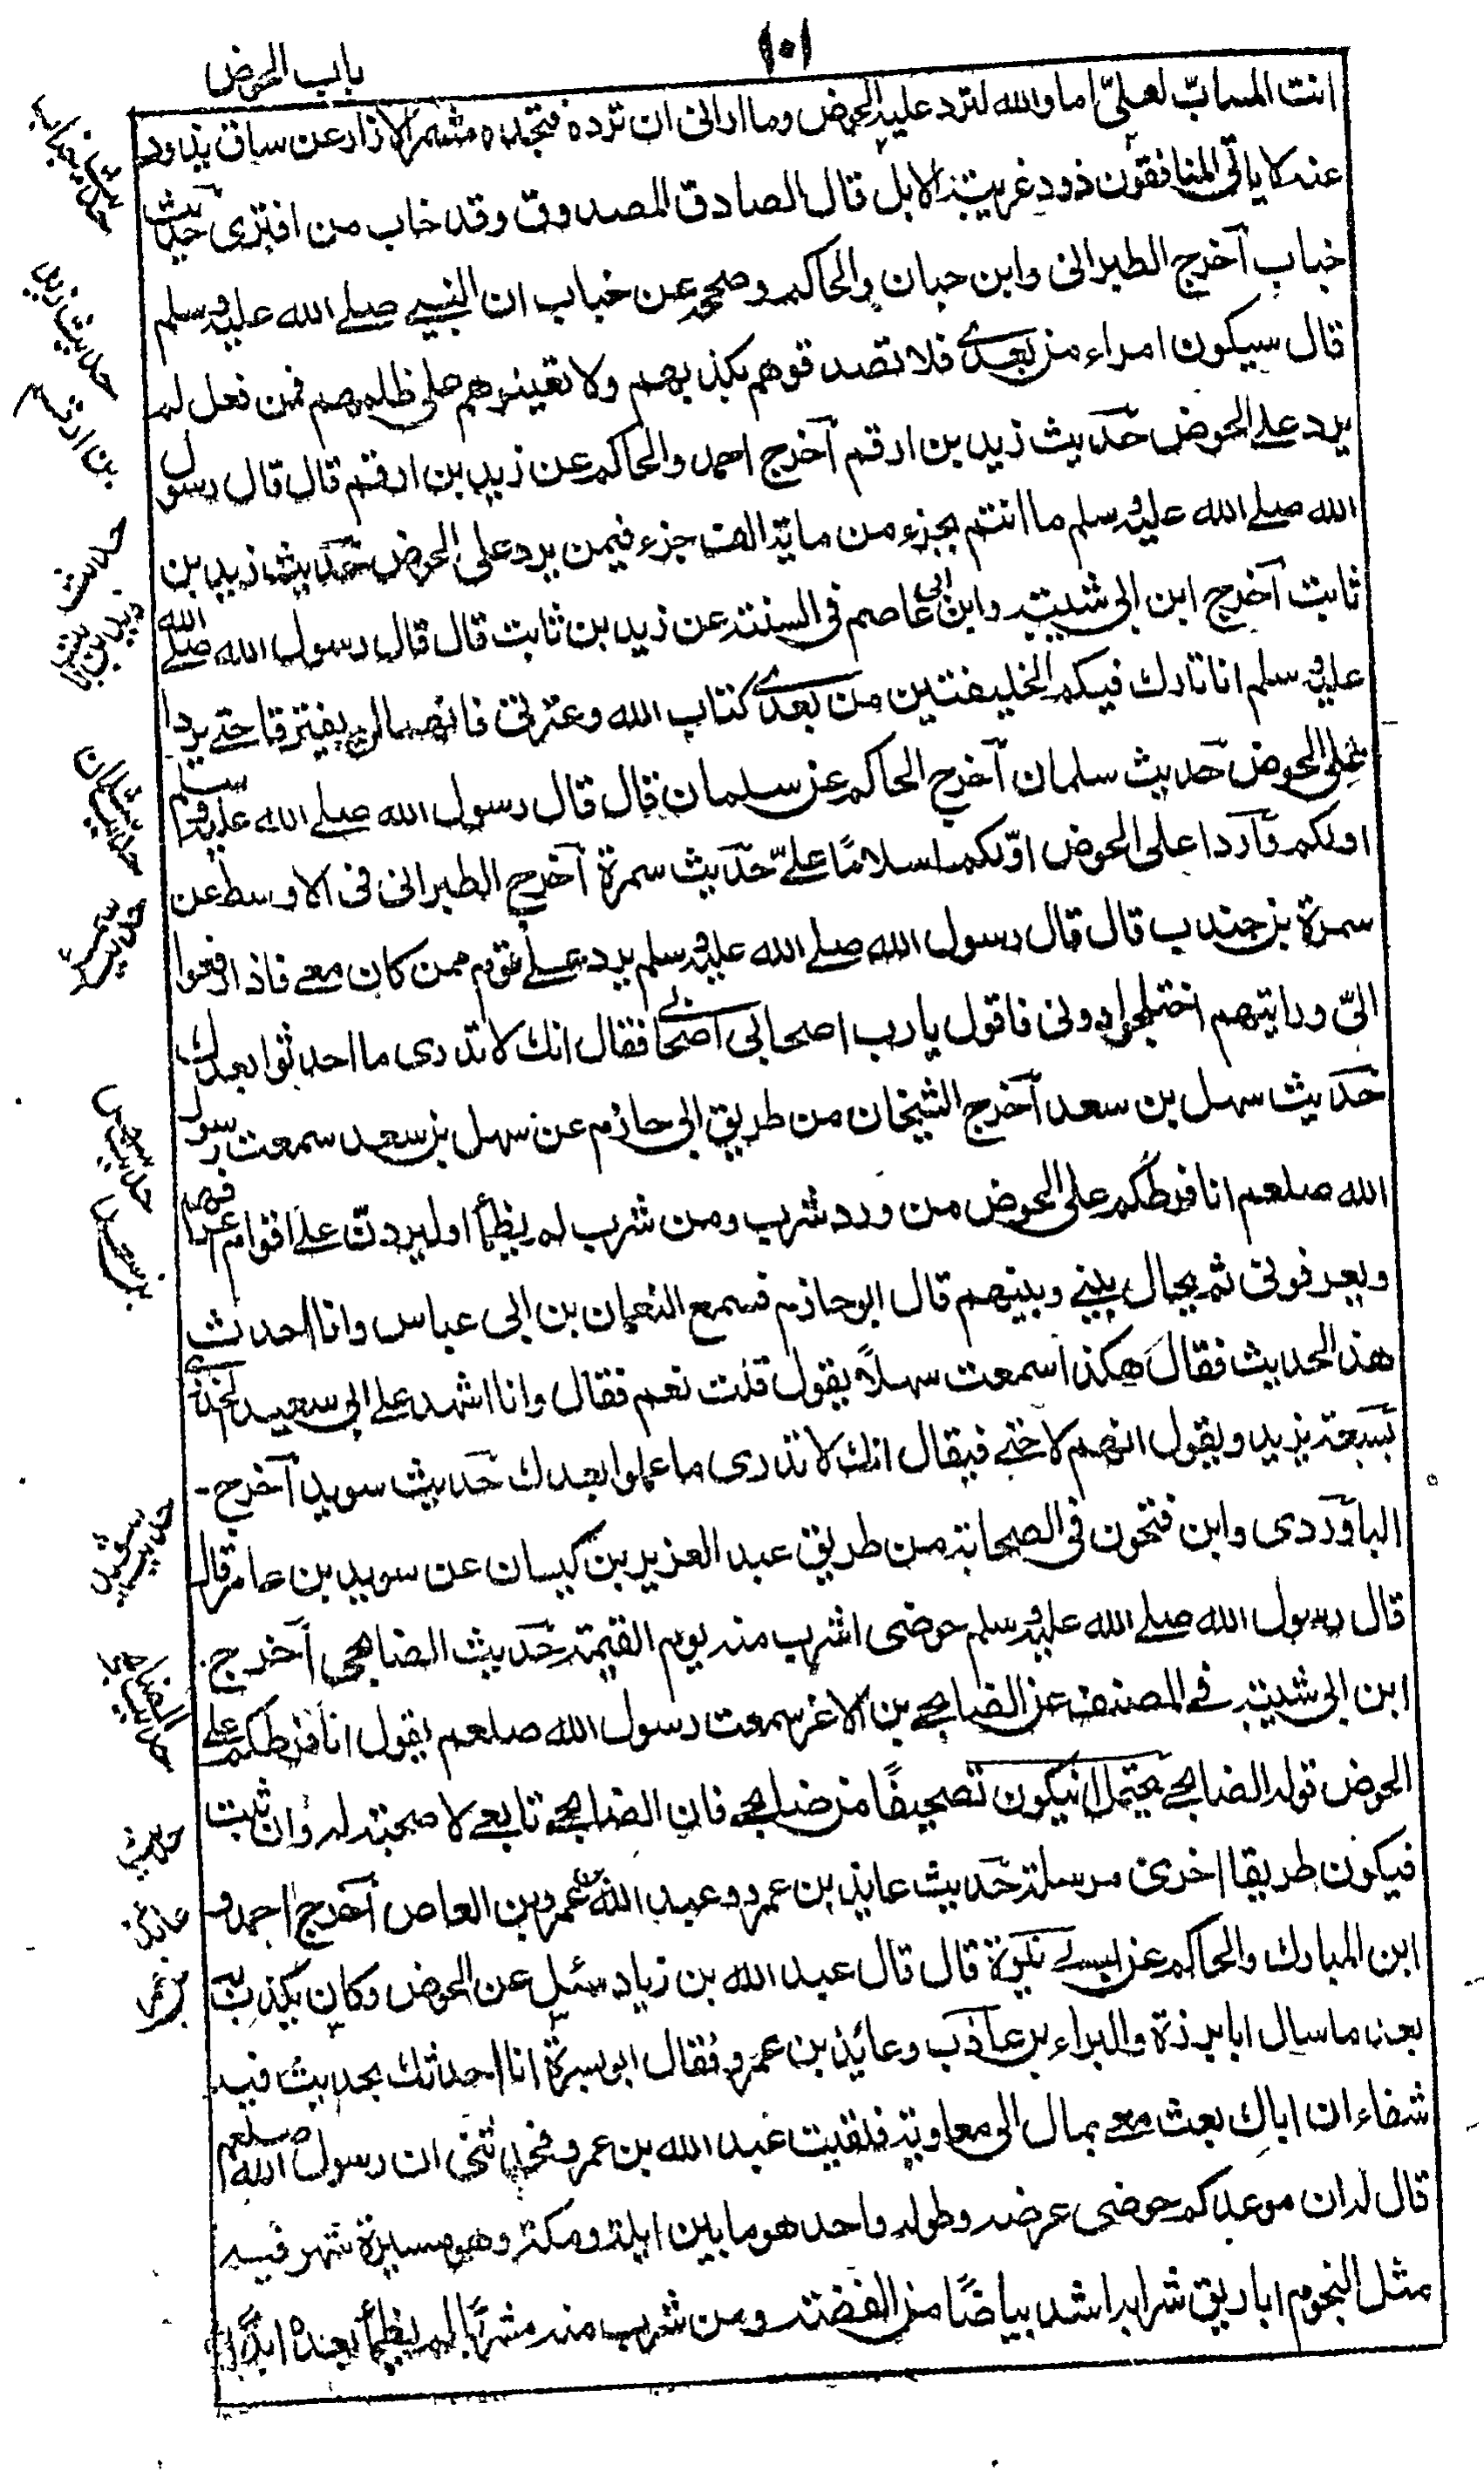 ١٠١
باب الحوض
انت المساب لعلىّ اما والله لترد عليه الحوض وما ارانى ان ترده فتجده مشمر الازار عن ساق يذود
عنه لا ياتى المنافقون ذود غريبة الابل قال الصادق المصدوق وقد خاب من افترى حديث
خباب آخرج الطبرانى وابن حبان والحاكم وصححه عن خباب ان النبى صلے الله عليه وسلم
قال سيكون امراء من بعدى فلا تصدقوهم بكذبهم ولا تعينوهم على ظلمهم فمن فعل لم
يرد علے الحوض حديث زيد بن ارقم آخرج احمد والحاكم عن زيد بن ارقم قال قال رسول
الله صلے الله عليه وسلم ما انتم بجزء من ماية الف جزء فيمن يرد على الحوض حديث زيد بن
ثابت آخرج ابن ابى شيبة وابن ابى عاصم فى السنة عن زيد بن ثابت قال قال رسول الله صلے الله
عليه وسلم انا تارك فيكم الخليفتين من بعدى كتاب الله وعترتى فانهما لن يفترقا حتے يردا
على الحوض حديث سلمان آخرج الحاكم عن سلمان قال قال رسول الله صلے الله عليه وسلم
اولكم واردا على الحوض اوّلكم اسلامًا علىّ حديث سمرة آخرج الطبرانى فى الاوسط عن
سمرة بن جندب قال قال رسول الله صلے الله عليه وسلم يرد علے قوم ممن كان معے فاذا رفعوا
الىّ ورايتهم اختلجوا دونى فاقول يا رب اصحابى اصحابى فقال انك لا تدرى ما احدثوا بعدك
حديث سهل بن سعد آخرج الشيخان من طريق ابى حازم عن سهل بن سعد سمعت رسول
الله صلعم انا فرطكم على الحوض من ورد شرب ومن شرب لم يظمأ او ليردن علے اقوام اعرفهم
ويعرفونى ثم يحال بينے وبينهم قال ابو حازم فسمع النعمان بن ابى عباس وانا احدث
هذا الحديث فقال هكذا سمعت سهلاً يقول قلت نعم فقال وانا اشهد على ابى سعيد الخدرى
بسبعة يزيد ويقول انهم لاخے فيقال انك لا تدرى ما عملوا بعدك حديث سويد آخرج
الباوردى وابن فتحون فى الصحابة من طريق عبد العزيز بن كيسان عن سويد بن عامر قال
قال رسول الله صلے الله عليه وسلم حوضى اشرب منه يوم القيمة حديث الضابحى آخرج
ابن ابى شيبة فے المصنف عن الضابحے بن الاغر سمعت رسول الله صلعم يقول انا فرطكم على
الحوض قوله الضابحے يحتمل ان يكون تصحيفًا من ضابحے فان الضابحے تابعے لا صحبة له وان ثبت
فيكون طريقا اخرى مرسلة حديث عايذ بن عمرو وعبد الله بن عمرو بن العاص آخرج احمد و
ابن المبارك والحاكم عن ابے سبرة قال قال عبد الله بن زياد سئل عن الحوض وكان يكذب به
بعد ما سال ابا برزة والبراء بن عازب وعائذ بن عمرو فقال ابو سبرة انا احدثك بحديث فيه
شفاء ان اباك بعث معے بمال الى معاوية فلقيت عبد الله بن عمرو فحدثنى ان رسول الله صلعم
قال له ان موعدكم حوضى عرضه وطوله واحد هو ما بين ايلة ومكة وهو مسيرة شهر فيه
مثل النجوم اباريق شرابه اشد بياضًا من الفضة ومن شرب منه مشربًا لم يظمأ بعده ابدًا
حديث خباب
حديث زيد
بن ارقم
حديث
زيد بن ثابت
حديث سلمان
حديث سمرة
حديث سهل
بن سعد
حديث سويد
حديث الضابحى
حديث
عايذ
بن عمر